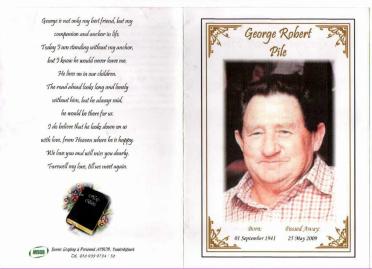 George is not only my best friend, but my
companion and anchor in life.
Today I am standing without my anchor,
but I know he would never leave me.
He lives on in our children.
The road ahead looks long and lonely
without him, but he always said,
he would be there for us.
I do believe that he looks down on us
with love, from Heaven where he is happy.
We love you and will miss you dearly.
Farewell my love, till we meet again.
HOLY
BIBLE
AVBOB
George Robert
Pile
Born:
01 September 1941
Passed Away:
25 May 2009